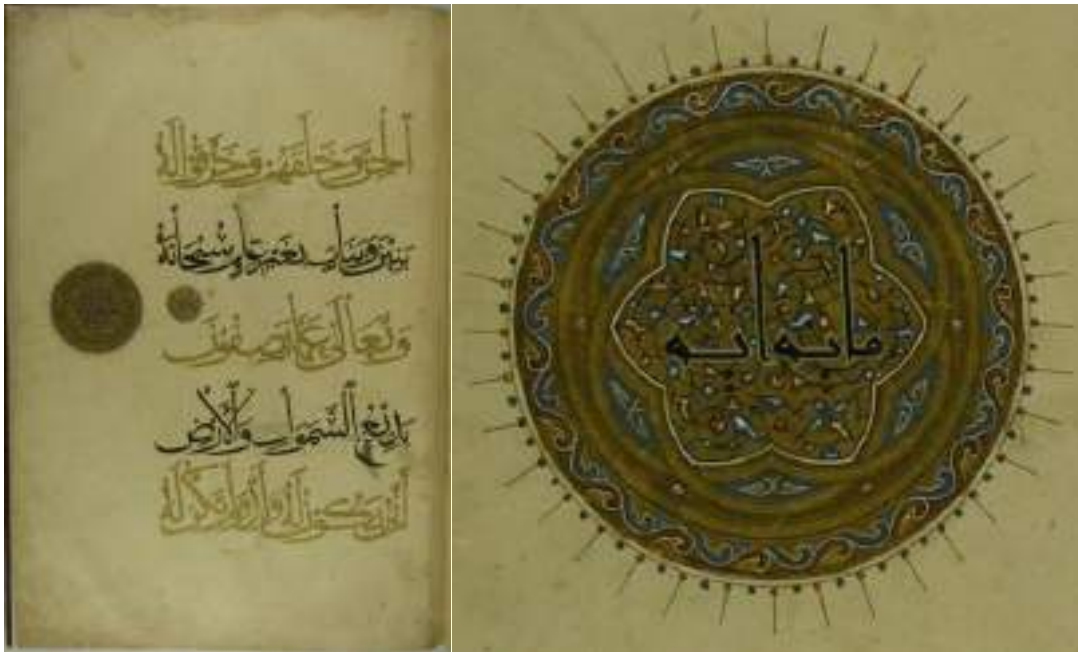 الجن وخلقهم وخرقوا له
بنين وبنات بغير علم سبحانه
وتعالى عما يصفون
بديع السموات والأرض
أنى يكون له ولد ولم تكن له
مايه ايه